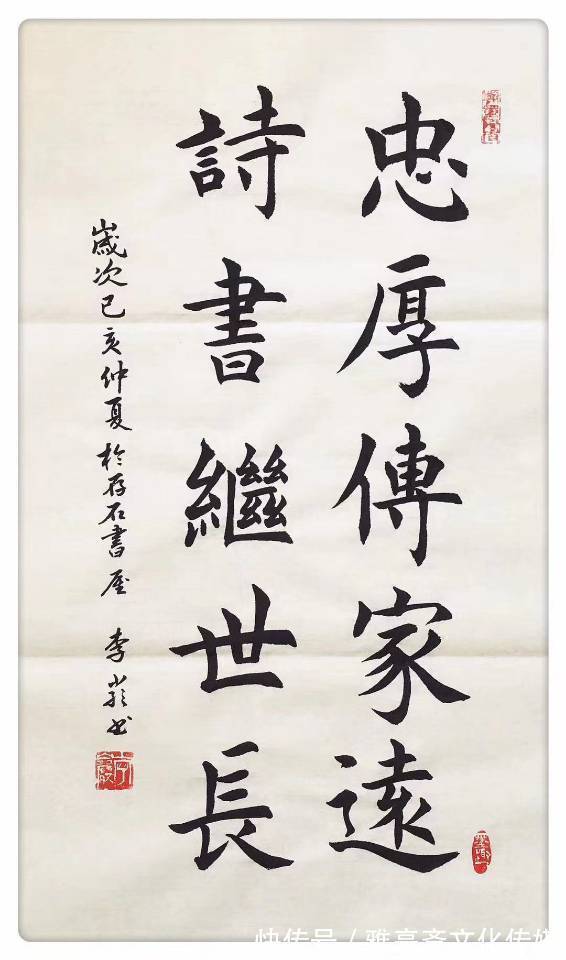 忠厚傳家遠
詩書繼世長
歲次己亥仲夏於存石書屋 李
快传号／雅亭斋文化传媒